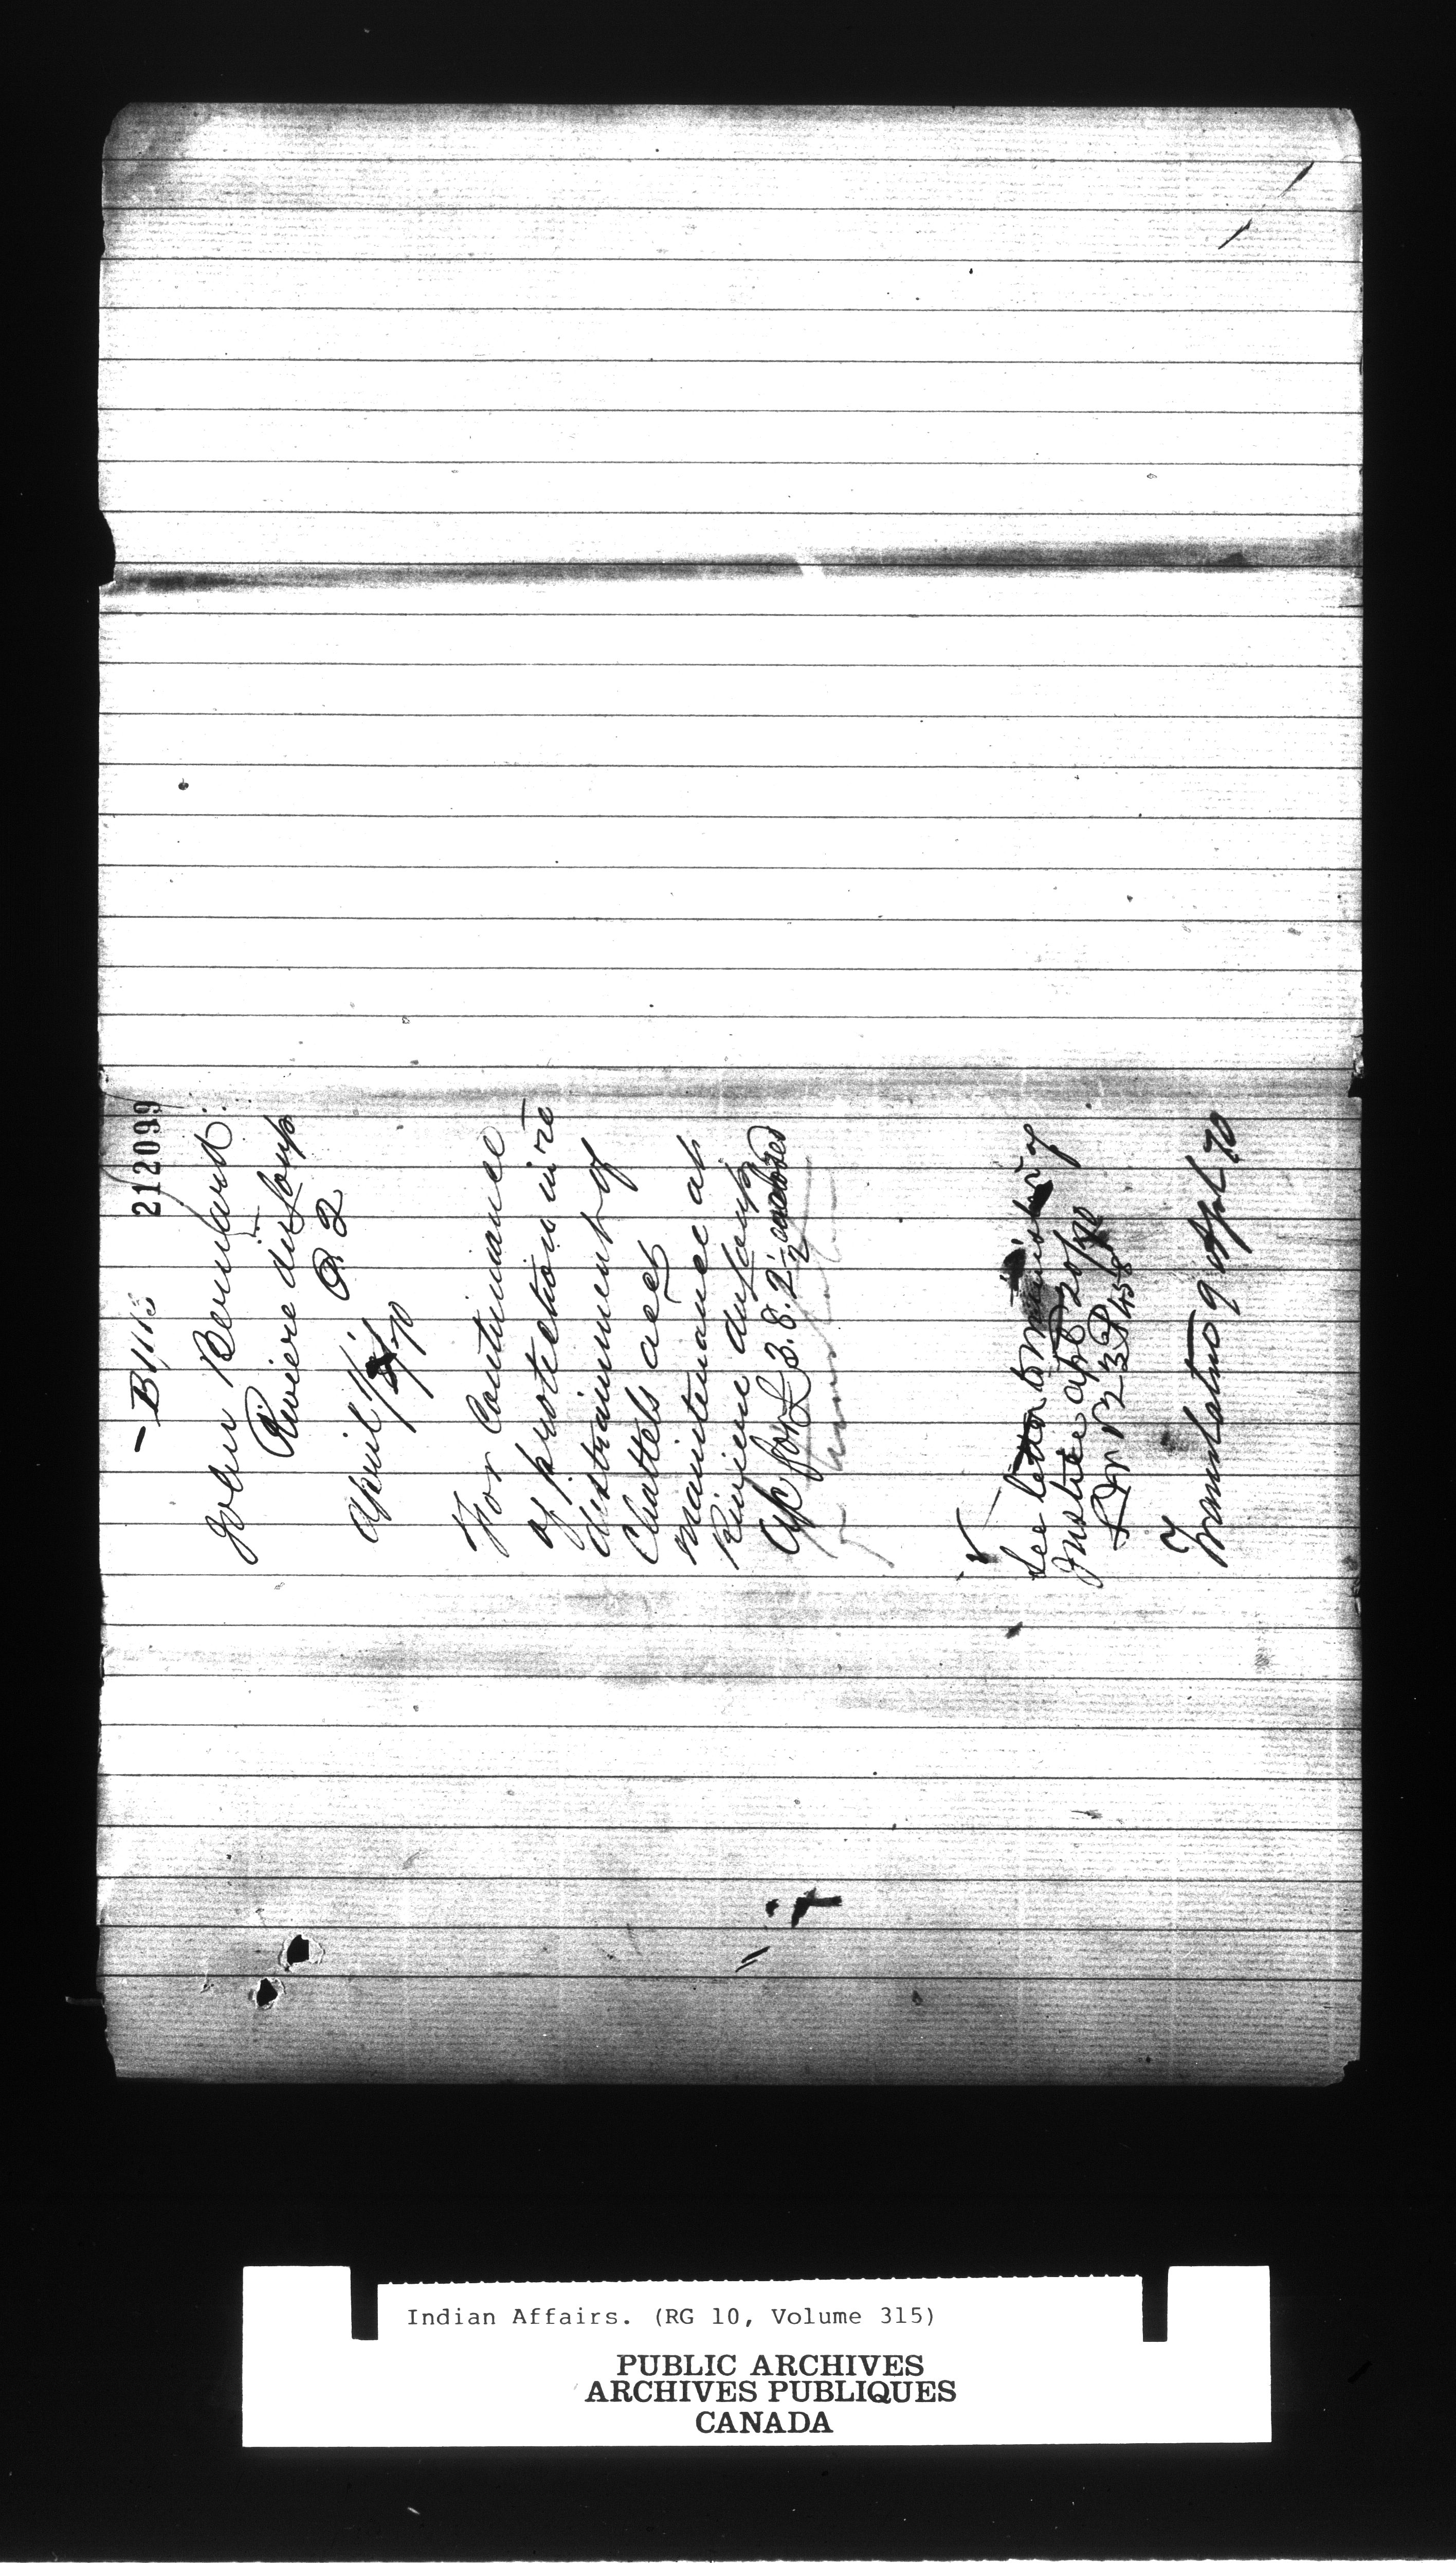 212099
B 1113
Jean Bernard
Rivière du Loup
P. Q
April 1/70
For Continuance
of protection in re
distrainment of
Chattels acct
maintenance at
Rivière du Loup
a/c for £ 3.8.2½ enclosed
See letter to Minister of
Justice apl 20/70
Translation 9 Apl 70
Indian Affairs. (RG 10, Volume 315)
PUBLIC ARCHIVES
ARCHIVES PUBLIQUES
CANADA